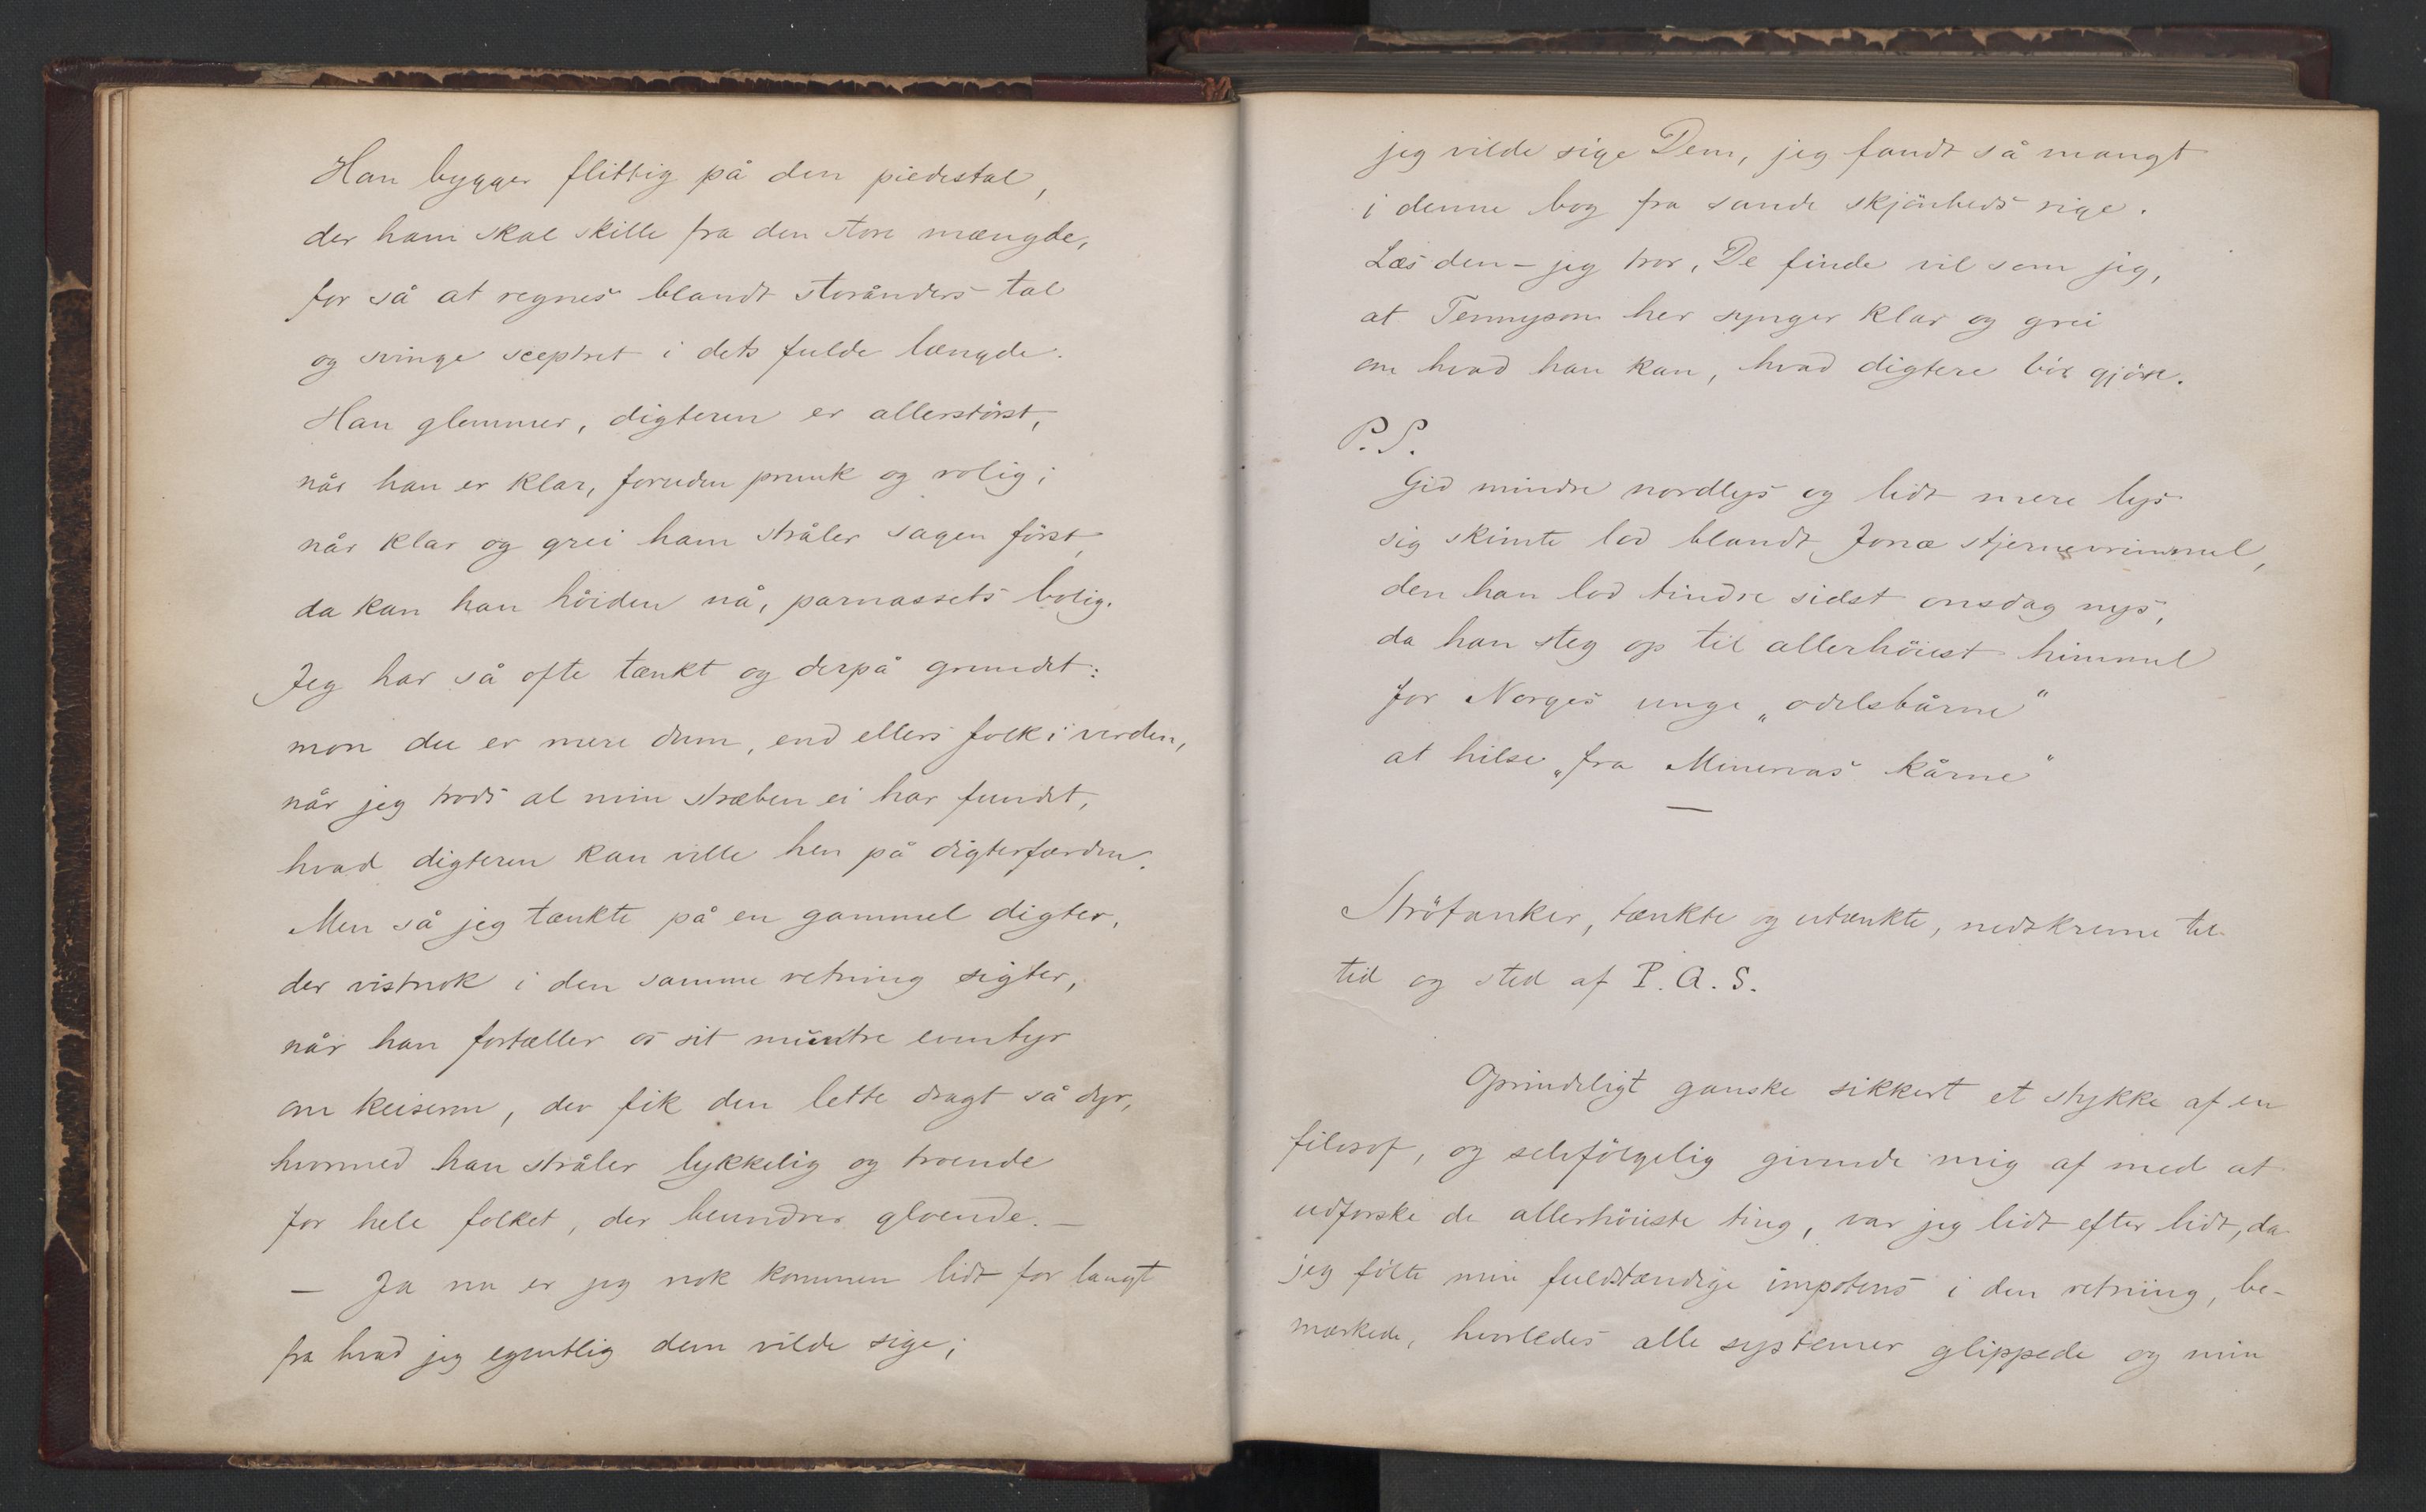 Han bygger flittig på den piedestal,
der ham skal skille fra den store mængde,
for så at regnes blandt storånders tal
og svinge sceptret i dets fulde længde.
Han glemmer, digteren er allerstörst,
når han er klar, foruden prunk og rolig;
når klar og grei ham stråler sagen först,
da kan han höiden nå, parnassets bolig.
Jeg har så ofte tænkt og derpå grundet:
mon du er mere dum, end ellers folk i verden,
når jeg trods al min stræben ei har fundet,
hvad digteren kan ville hen på digterfærden.
Men så jeg tænkte på en gammel digter,
der vistnok i den samme retning sigter,
når han fortæller os sit muntre eventyr
om keiseren, der fik den lette dragt så dyr,
hvormed han stråler lykkelig og troende
for hele folket, der beundrer gloende. —
— Ja nu er jeg nok kommen lidt for langt
fra hvad jeg egentlig dem vilde sige;
jeg vilde sige Dem, jeg fandt så mangt
i denne bog fra sande skjönheds rige.
Læs den – jeg tror, De finde vil som jeg,
at Tennyson her synger klar og grei
om hvad han kan, hvad digtere bör gjöre.
P.S.
Gid mindre nordlys og lidt mere lys
sig skimte lod blandt Jonæ stjernevrimmel,
den han lod tindre sidst onsdag nys,
da han steg op til allerhöiest himmel
for Norges unge „odelsbårne"
at hilse „fra Minervas kårne"
—
Ströfanker, tænkte og utænkte, nedskrevne til
tid og sted af P. A. S.
Oprindeligt ganske sikkert et stykke af en
filosof, og selvfölgelig givende mig af med at
udforske de allerhöieste ting, var jeg lidt efter lidt, da
jeg fölte min fuldstændige impotens i den retning, be-
mærkede, hvorledes alle systemer glippede og min